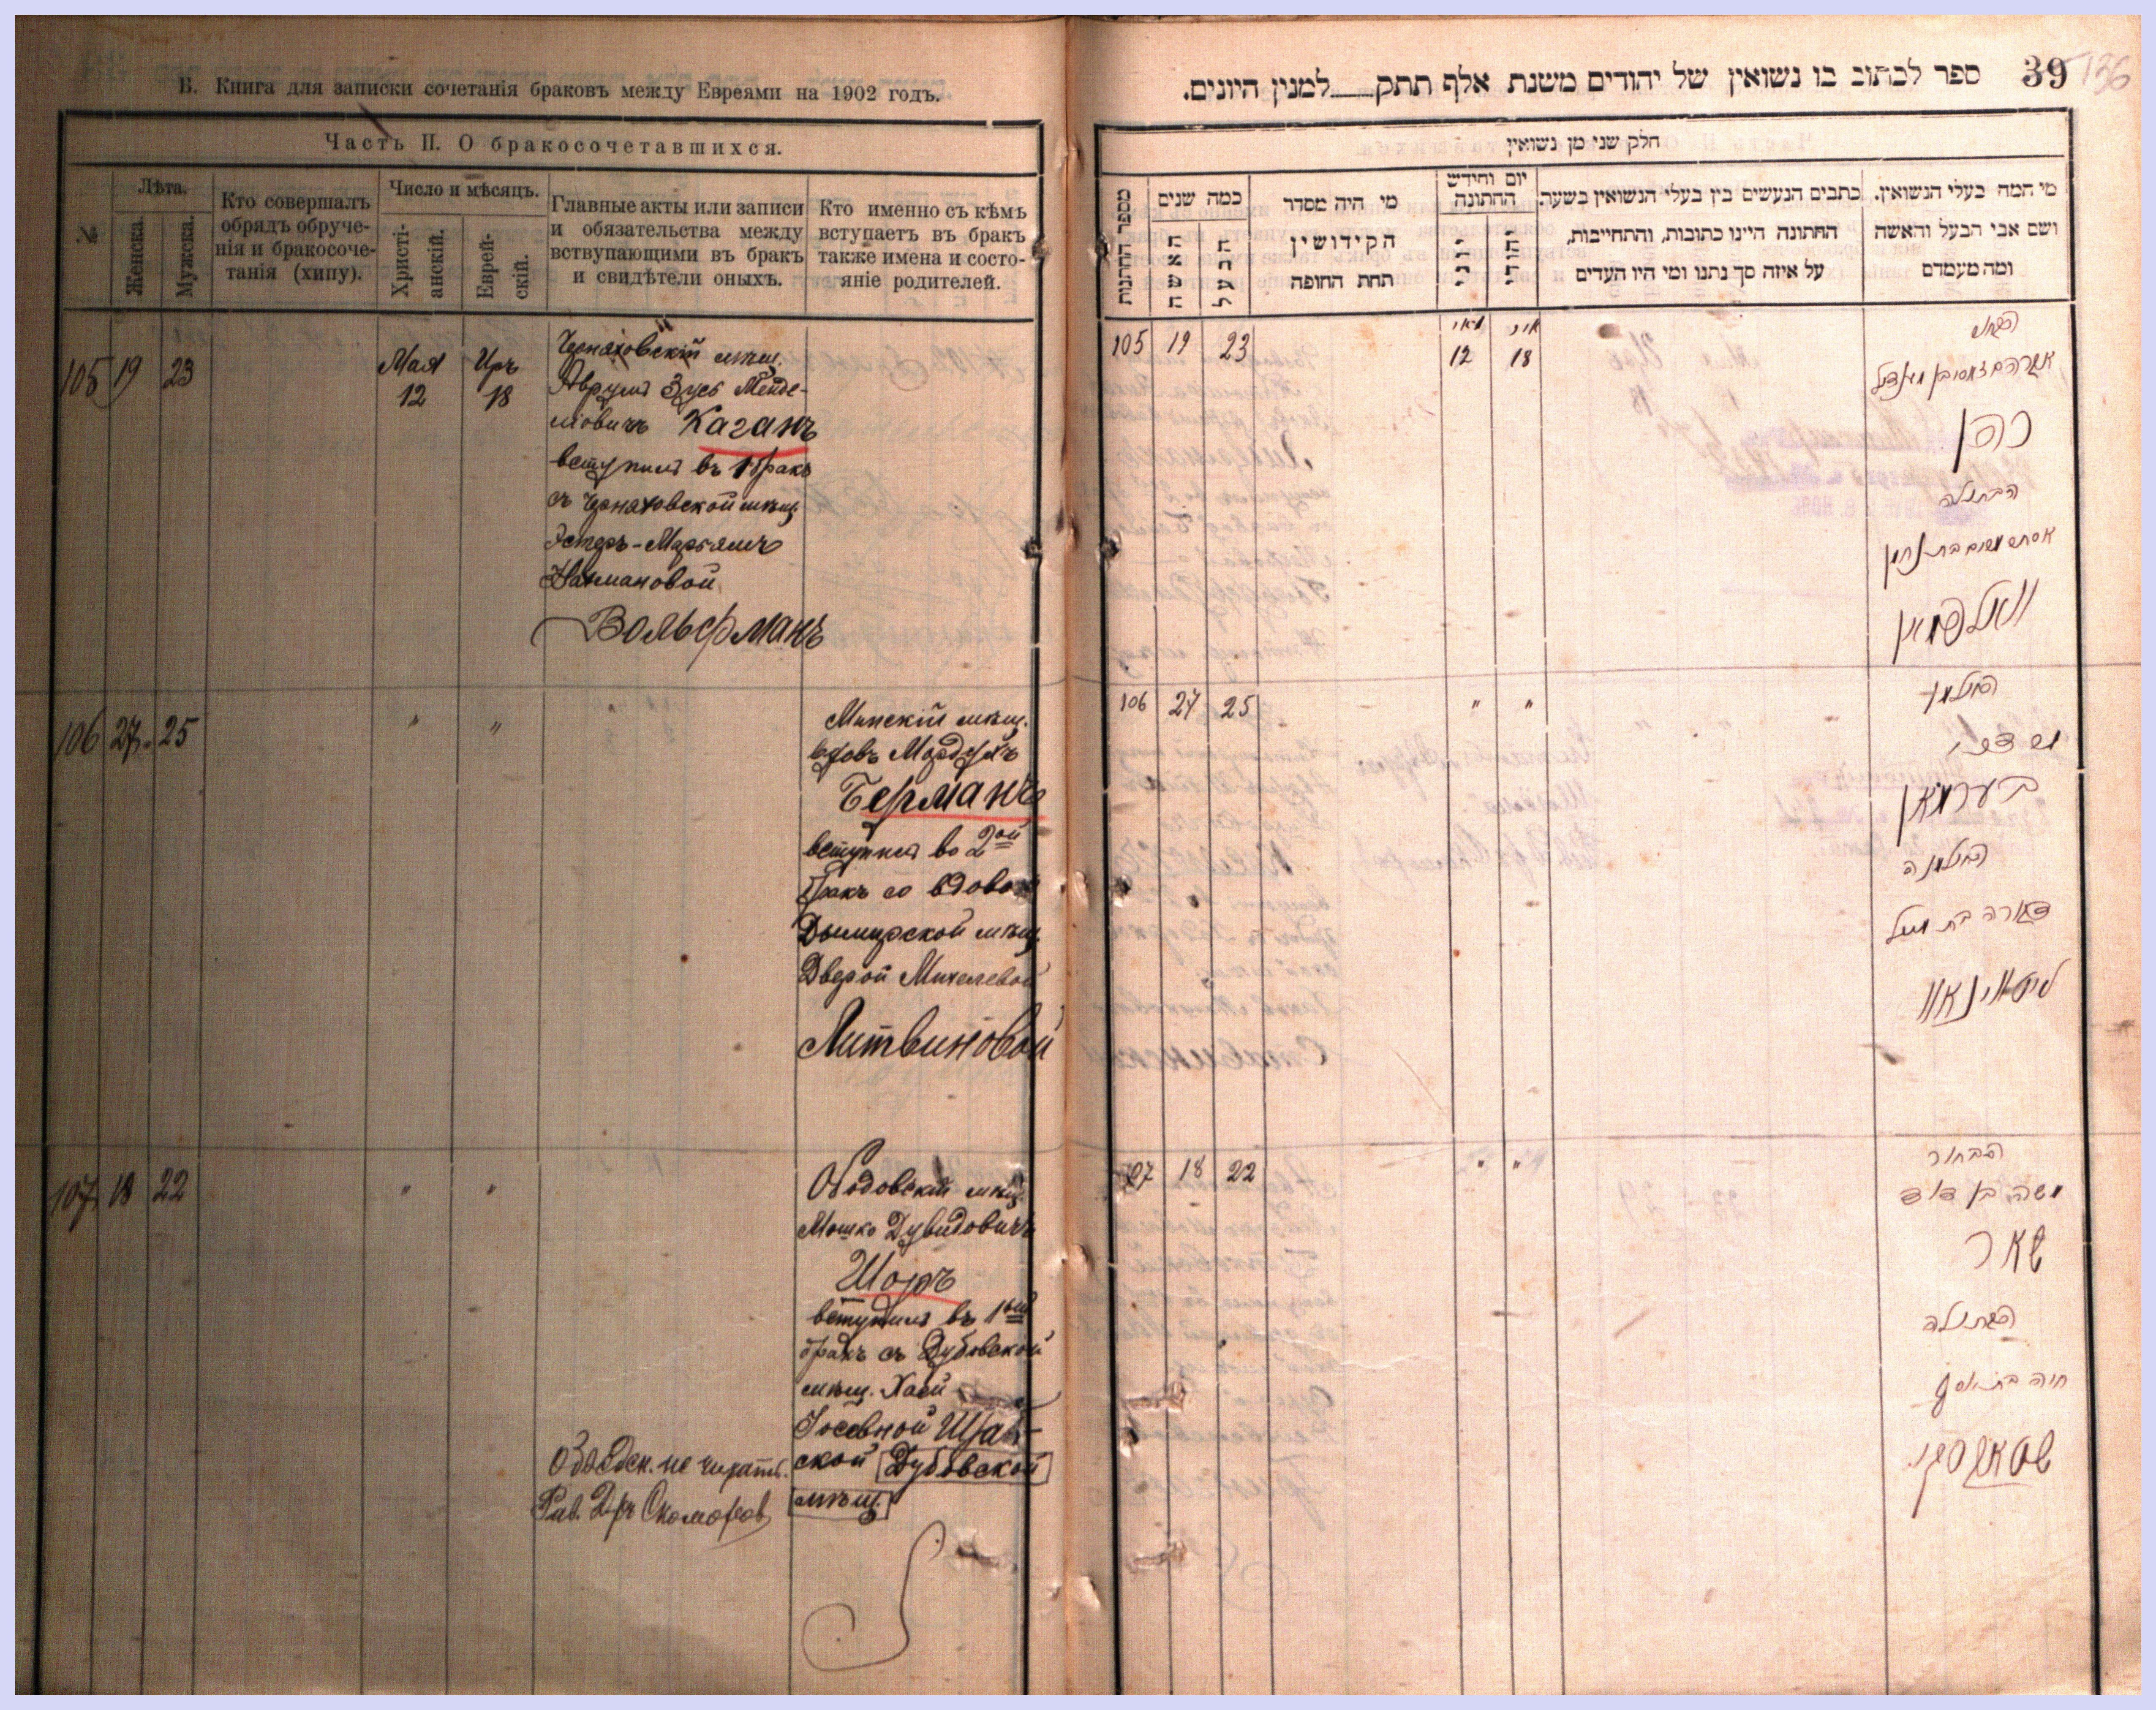 Б. Книга для записки сочетанія браковъ между Евреями на 1902 годъ.
Часть II. О бракосочетавшихся.
№
Лѣта.
Женска.
Мужска.
Кто совершалъ
обрядъ обруче-
нія и бракосоче-
танія (хипу).
Число и мѣсяцъ.
Христі-
анскій.
Еврей-
скій.
Главные акты или записи
и обязательства между
вступающими въ бракъ
и свидѣтели оныхъ.
Кто именно съ кѣмъ
вступаетъ въ бракъ
также имена и состо-
яніе родителей.
105 19 23
Мая
12
Иръ
18
Черняховскій мѣщ.
Аврумъ Зусь Менде-
левичъ Каганъ
вступилъ въ 1 бракъ
съ Черняховской мѣщ.
Эстеръ-Марьямъ
Нахмановой
Вольфманъ
106 27 25
" "
Минскій мѣщ.
вдовъ Мордухъ
Берманъ
вступилъ во 2ой
бракъ со вдовой
Дымирской мѣщ.
Дверой Михелевой
Литвиновой
107 18 22
" "
мѣщ.
Мошко Дувидовичъ
Шоръ
вступилъ въ 1ый
бракъ съ Дубовской
мѣщ. Хаей
Іосевной
ской Дубовской
мѣщ.
не читать.
Рав. Д-ръ Скоморов
39
136
ספר לכתוב בו נשואין של יהודים משנת אלף תתק למנין היונים.
חלק שני מן נשואין
מספר הדרגות
כמה שנים
האשה
הבעל
מי היה מסדר
הקידושין
תחת החופה
יום וחידש
החתונה
יוני
יהודי
כתבים הנעשים בין בעלי הנשואין בשעת
החתונה היינו כתובות, והתחייבות,
על איזה סך נתנו ומי היו העדים
מי המה בעלי הנשואין,
ושם אבי הבעל והאשה
ומה מעמדם
105 19 23
מאי
12
איר
18
כהן
הבתולה
וואלפמאן
106 27 25
" "
האלמן
בערמאן
האלמנה
ליטווינאוו
107 18 22
" "
הבחור
משה בן דוד
שאר
הבתולה
חיה בת יוסף